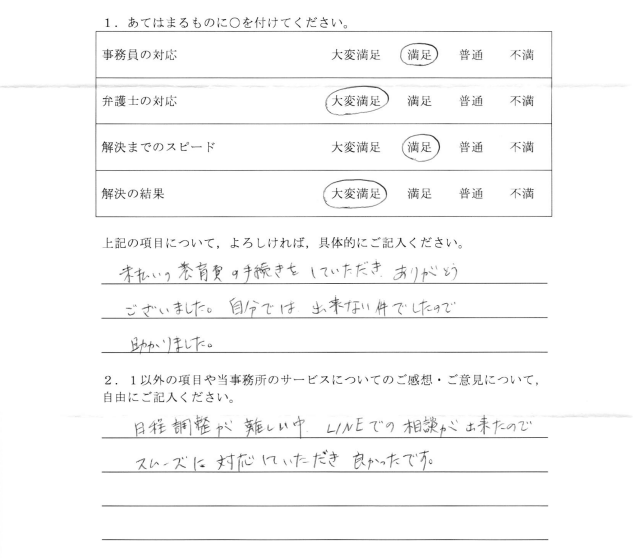 １．あてはまるものに○を付けてください。
事務員の対応 大変満足 満足 普通 不満
弁護士の対応 大変満足 満足 普通 不満
解決までのスピード 大変満足 満足 普通 不満
解決の結果 大変満足 満足 普通 不満
上記の項目について，よろしければ，具体的にご記入ください。
未払いの養育費の手続きをしていただき ありがとう
ございました。自分では 出来ない件でしたので
助かりました。
２．１以外の項目や当事務所のサービスについてのご感想・ご意見について，
自由にご記入ください。
日程調整が難しい中 LINEでの相談が出来たので
スムーズに対応していただき良かったです。